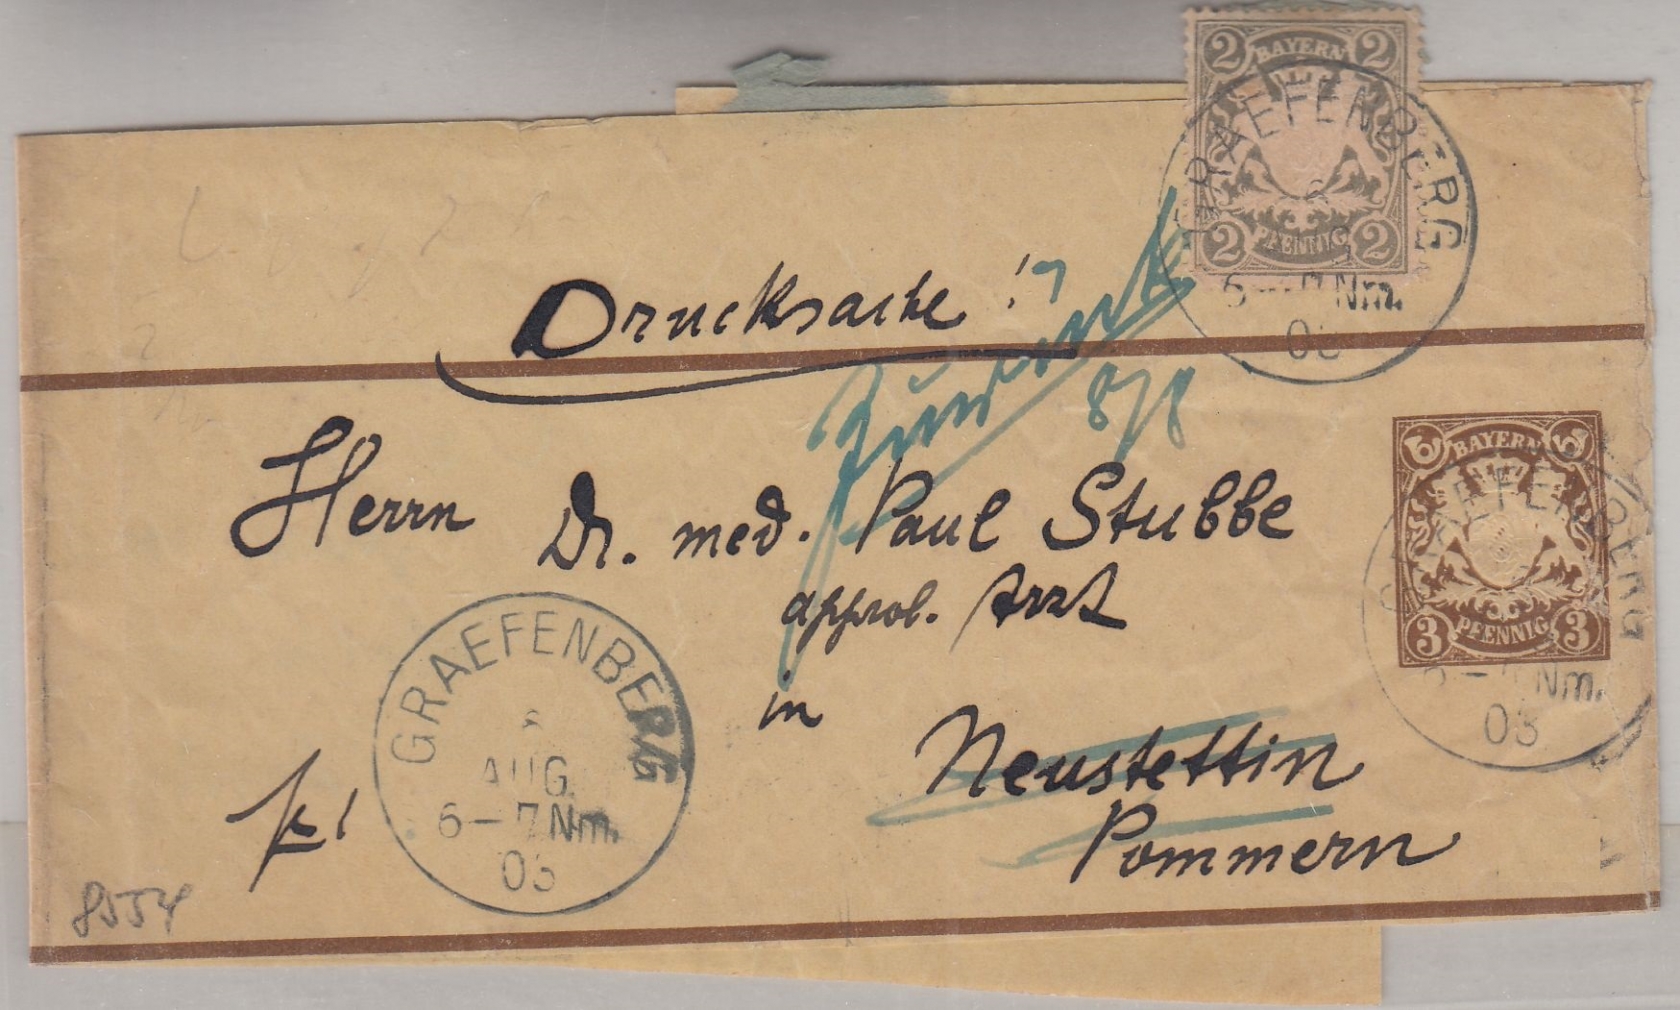 2 BAYERN 2
2 PFENNIG 2
GRAEFENBERG
6
6-7 Nm.
03
Drucksache!
Zurück
8/8
Herrn Dr. med. Paul Stubbe
approb. Arzt
in
Neustettin
Pommern
BAYERN
3 PFENNIG 3
GRAEFENBERG
6-7 Nm.
03
GRAEFENBERG
6
AUG.
6-7 Nm.
03
fr!
8554